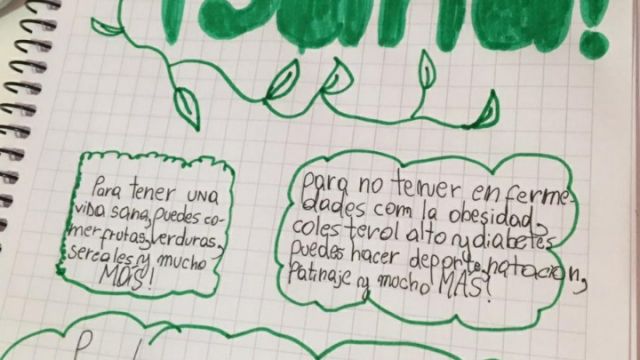 sana!
Para tener una
vida sana, puedes co-
mer frutas, verduras,
sereales, y mucho
MAS!
para no tener enferme-
dades com la obesidad,
colesterol alto y diabetes
puedes hacer deporte, natacion,
patinaje y mocho MAS!